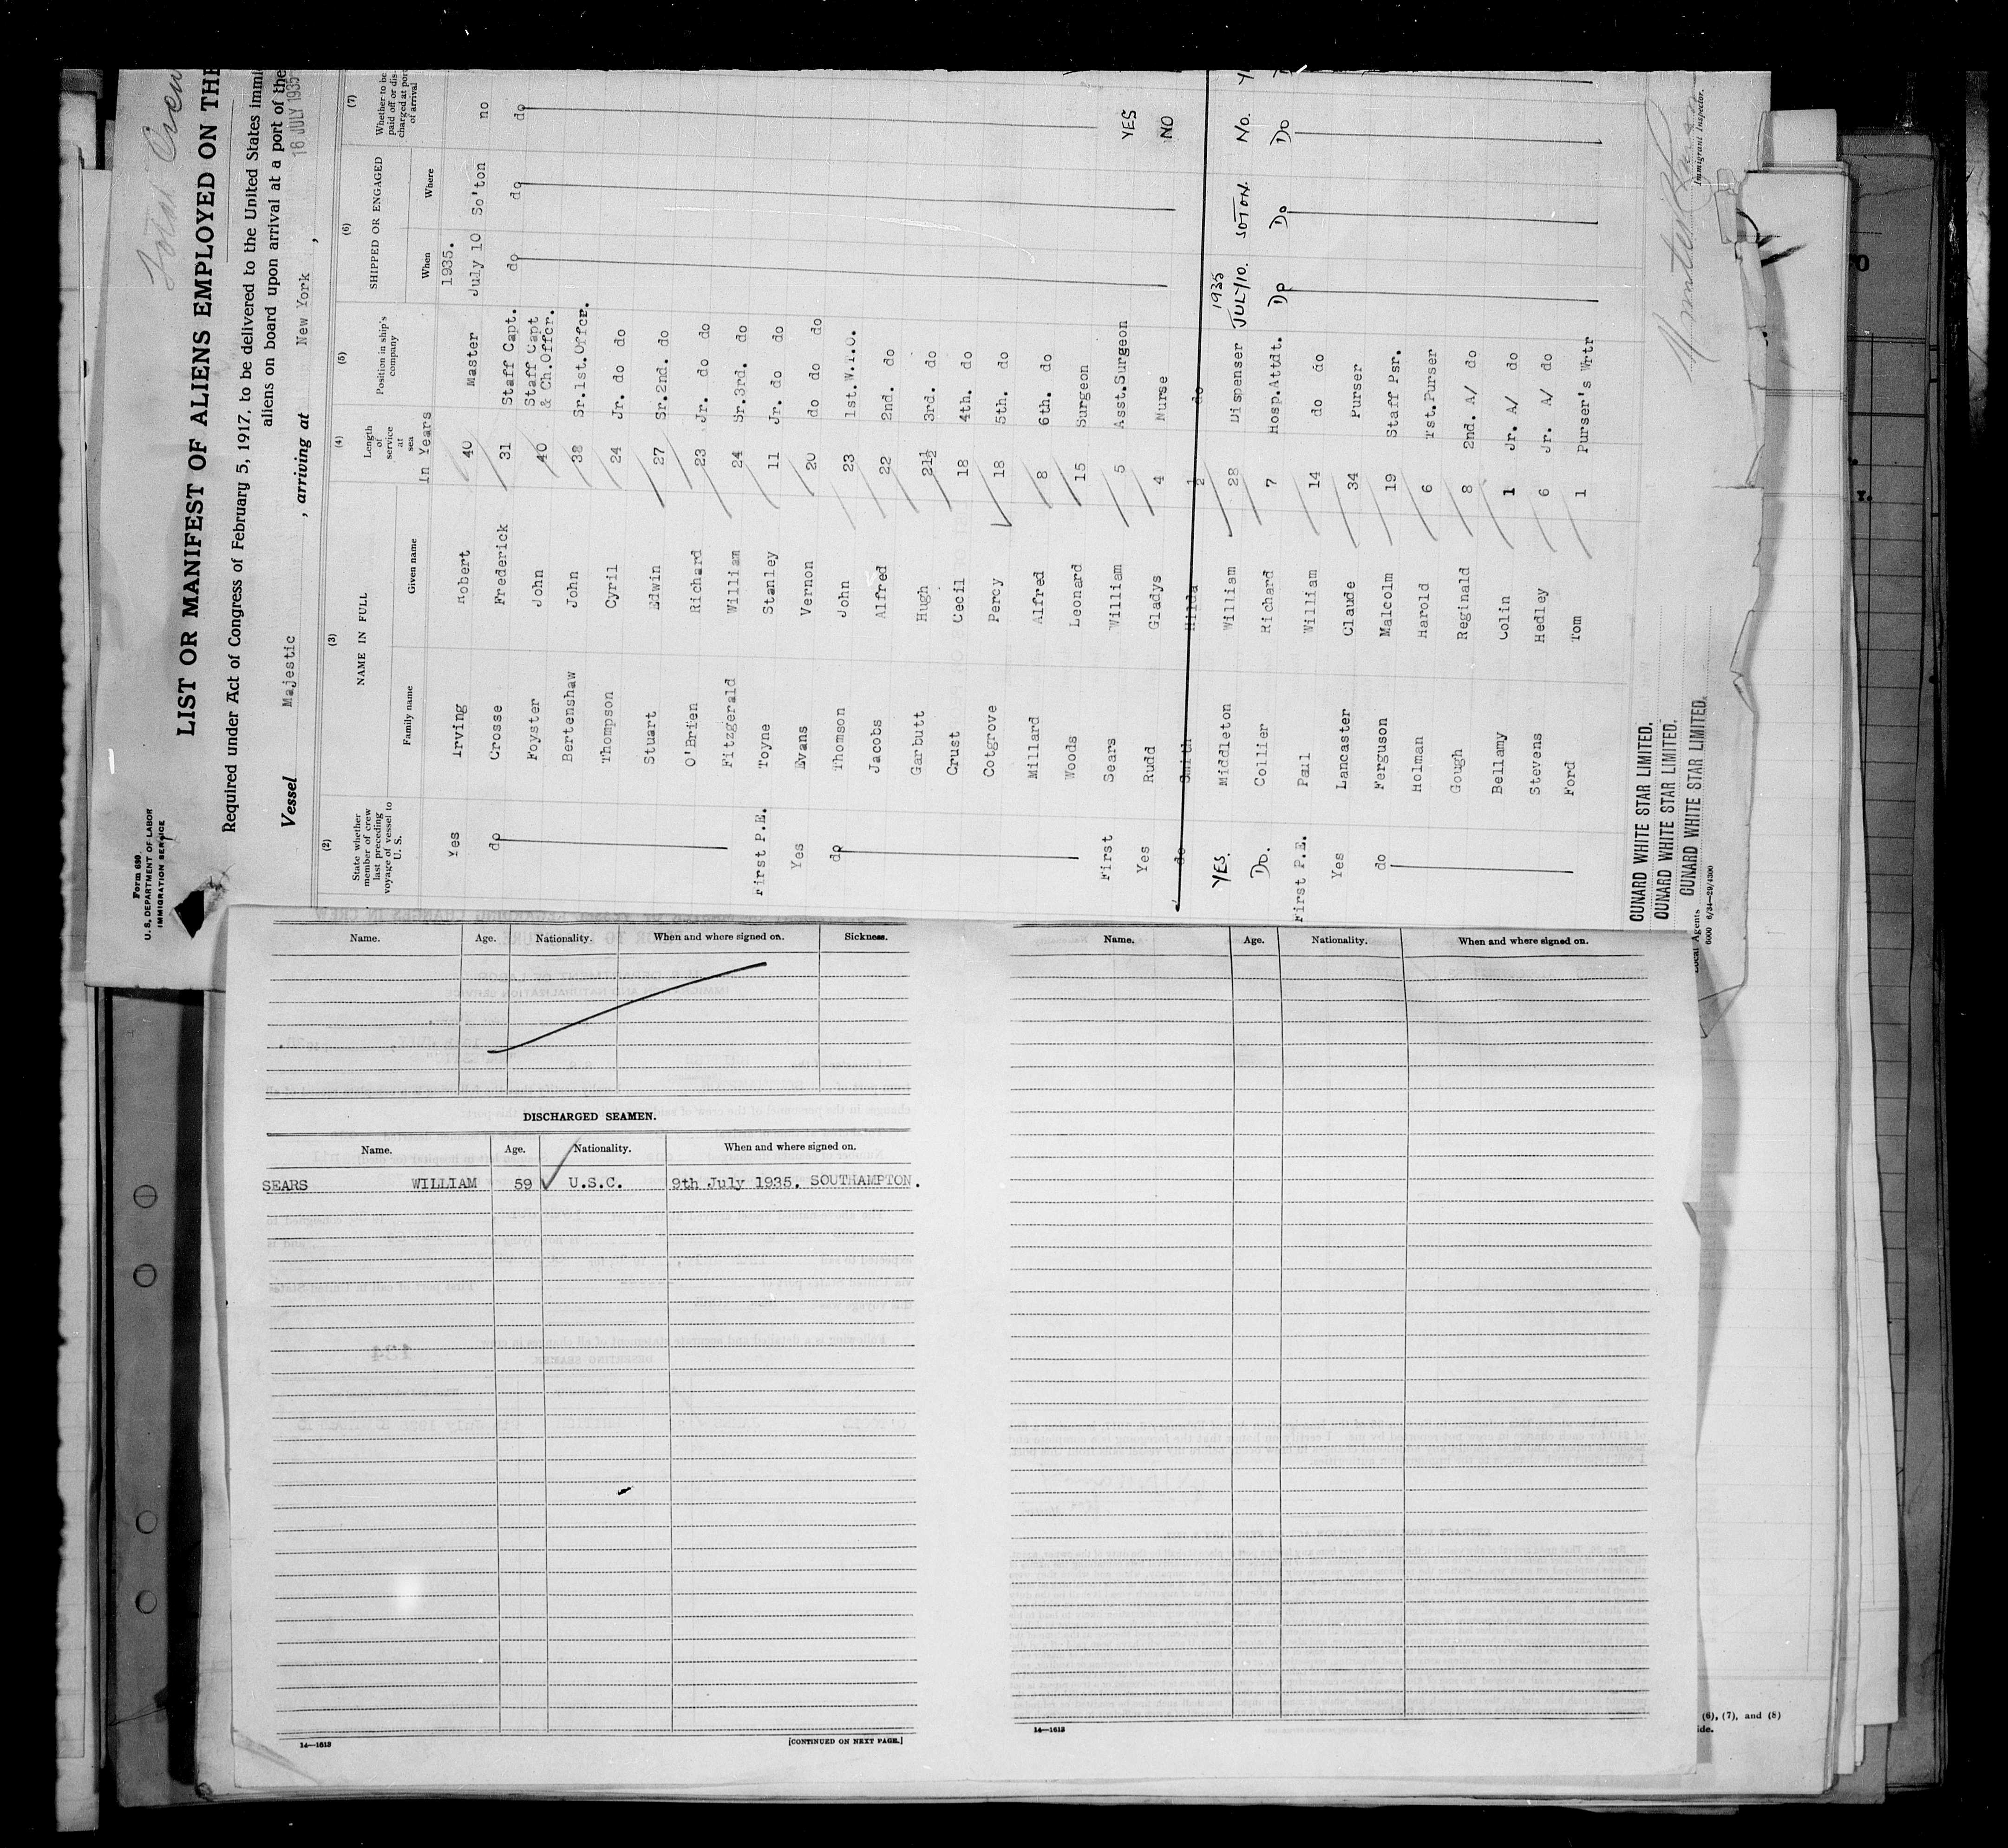 Form 680
U. S. DEPARTMENT OF LABOR
IMMIGRATION SERVICE
LIST OR MANIFEST OF ALIENS EMPLOYED ON THE
Required under Act of Congress of February 5, 1917, to be delivered to the United States immi
aliens on board upon arrival at a port of the
Vessel Majestic , arriving at New York , 16 JULY 1935
(2) (3) (4) (5) (6) (7)
State whether member of crew last preceding voyage of vessel to U. S. NAME IN FULL Length of service at sea Position in ship's company SHIPPED OR ENGAGED Whether to be paid off or discharged at port of arrival
Family name Given name In Years When Where
1935.
Yes Irving Robert 40 Master July 10 So'ton no
do Crosse Frederick 31 Staff Capt. do do do
Foyster John 40 Staff Capt & Ch.Offcr.
Bertenshaw John 38 Sr.1st.Offcr.
Thompson Cyril 24 Jr. do do
Stuart Edwin 27 Sr.2nd. do
O'Brien Richard 23 Jr. do do
Fitzgerald William 24 Sr.3rd. do
First P.E. Toyne Stanley 11 Jr. do do
Yes Evans Vernon 20 do do do
do Thomson John 23 1st.W.T.O.
Jacobs Alfred 22 2nd. do
Garbutt Hugh 21½ 3rd. do
Crust Cecil 18 4th. do
Cotgrove Percy 18 5th. do
Millard Alfred 8 6th. do
Woods Leonard 15 Surgeon
First Sears William 5 Asst.Surgeon YES
Yes Rudd Gladys 4 Nurse NO
do Smith Hilda ½ do
1935
YES. Middleton William 28 Dispenser JULY/10. SOTON. No.
Do. Collier Richard 7 Hosp.Attdt. Do Do Do
First P.E. Paul William 14 do do
Yes Lancaster Claude 34 Purser
do Ferguson Malcolm 19 Staff Psr.
Holman Harold 6 1st.Purser
Gough Reginald 8 2nd. A/ do
Bellamy Colin 1 Jr. A/ do
Stevens Hedley 6 Jr. A/ do
Ford Tom 1 Purser's Wrtr
CUNARD WHITE STAR LIMITED.
CUNARD WHITE STAR LIMITED.
CUNARD WHITE STAR LIMITED.
Local Agents
6000 6/34—29/4300
Immigrant Inspector.
Name. Age. Nationality. When and where signed on. Sickness.
DISCHARGED SEAMEN.
Name. Age. Nationality. When and where signed on.
SEARS WILLIAM 59 U.S.C. 9th July 1935. SOUTHAMPTON.
14—1613 [CONTINUED ON NEXT PAGE.]
Name. Age. Nationality. When and where signed on.
14—1613
(6), (7), and (8)
ide.